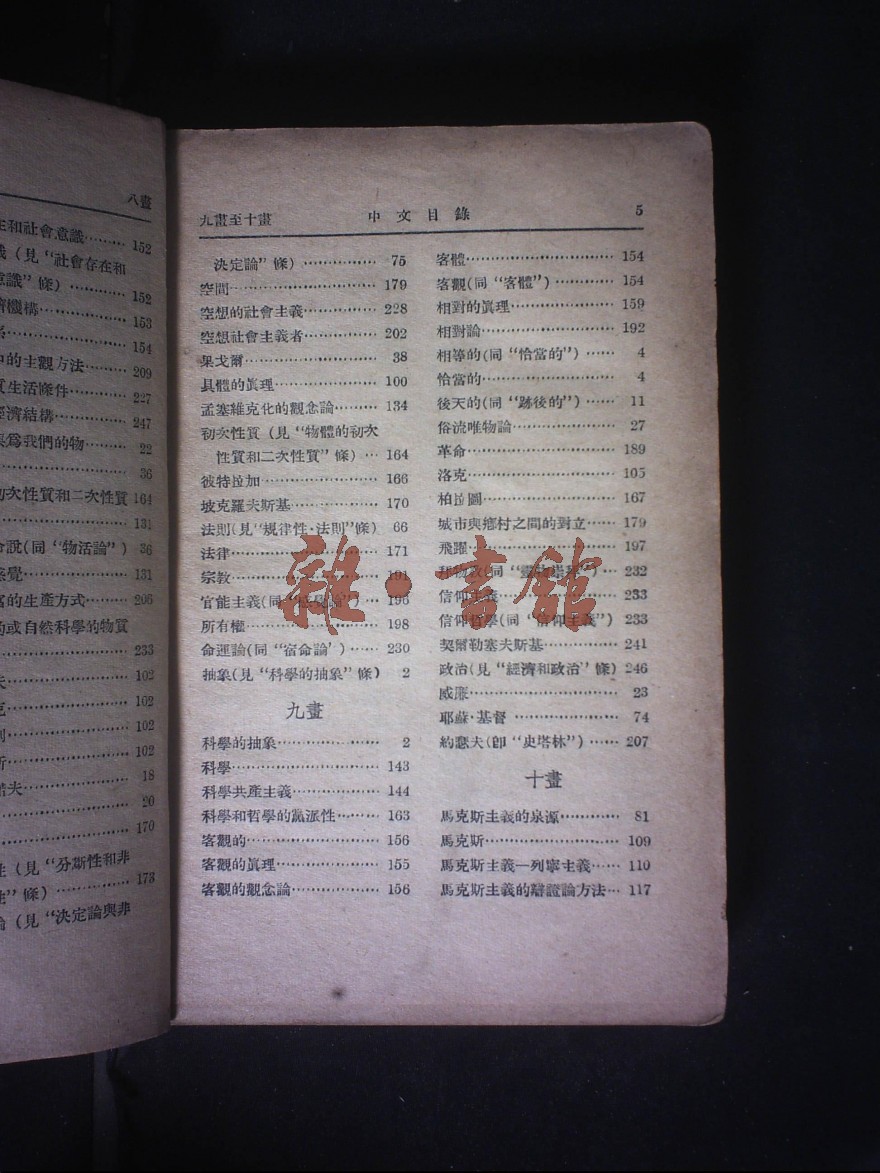 八畫
生和社會意識……… 152
(見“社會存在和
意識”條)……… 152
濟機構……… 153
……… 154
中的主觀方法……… 209
質生活條件……… 227
經濟結構……… 247
與爲我們的物……… 22
……… 36
初次性質和二次性質 164
……… 131
命說(同“物活論”) 36
感覺……… 131
的生產方式……… 206
的或自然科學的物質
……… 233
夫……… 102
克……… 102
……… 102
斯……… 102
諾夫……… 18
……… 20
……… 170
性(見“分斷性和非
性”條)……… 173
論(見“決定論與非
九畫至十畫 中文目錄 5
決定論”條)……… 75
空間……… 179
空想的社會主義……… 228
空想社會主義者……… 202
果戈爾……… 38
具體的眞理……… 100
孟塞維克化的觀念論……… 134
初次性質(見“物體的初次
性質和二次性質”條)… 164
彼特拉加……… 166
坡克羅夫斯基……… 170
法則(見“規律性·法則”條) 66
法律……… 171
宗教……… 191
官能主義(同“感覺論”)… 196
所有權……… 198
命運論(同“宿命論’)…… 230
抽象(見“科學的抽象”條) 2
九畫
科學的抽象……… 2
科學……… 143
科學共產主義……… 144
科學和哲學的黨派性……… 163
客觀的……… 156
客觀的眞理……… 155
客觀的觀念論……… 156
客體……… 154
客觀(同“客體”)……… 154
相對的眞理……… 159
相對論……… 192
相等的(同“恰當的”)…… 4
恰當的……… 4
後天的(同“跡後的”)…… 11
俗流唯物論……… 27
革命……… 189
洛克……… 105
柏拉圖……… 167
城市與鄉村之間的對立…… 179
飛躍……… 197
拜物敎(同“靈物崇拜”)… 232
信仰主義……… 233
信仰哲學(同“信仰主義”) 233
契爾勒塞夫斯基……… 241
政治(見“經濟和政治”條) 246
威廉……… 23
耶蘇·基督……… 74
約瑟夫(卽“史塔林”)…… 207
十畫
馬克斯主義的泉源……… 81
馬克斯……… 109
馬克斯主義—列寧主義…… 110
馬克斯主義的辯證論方法… 117
雜·書館